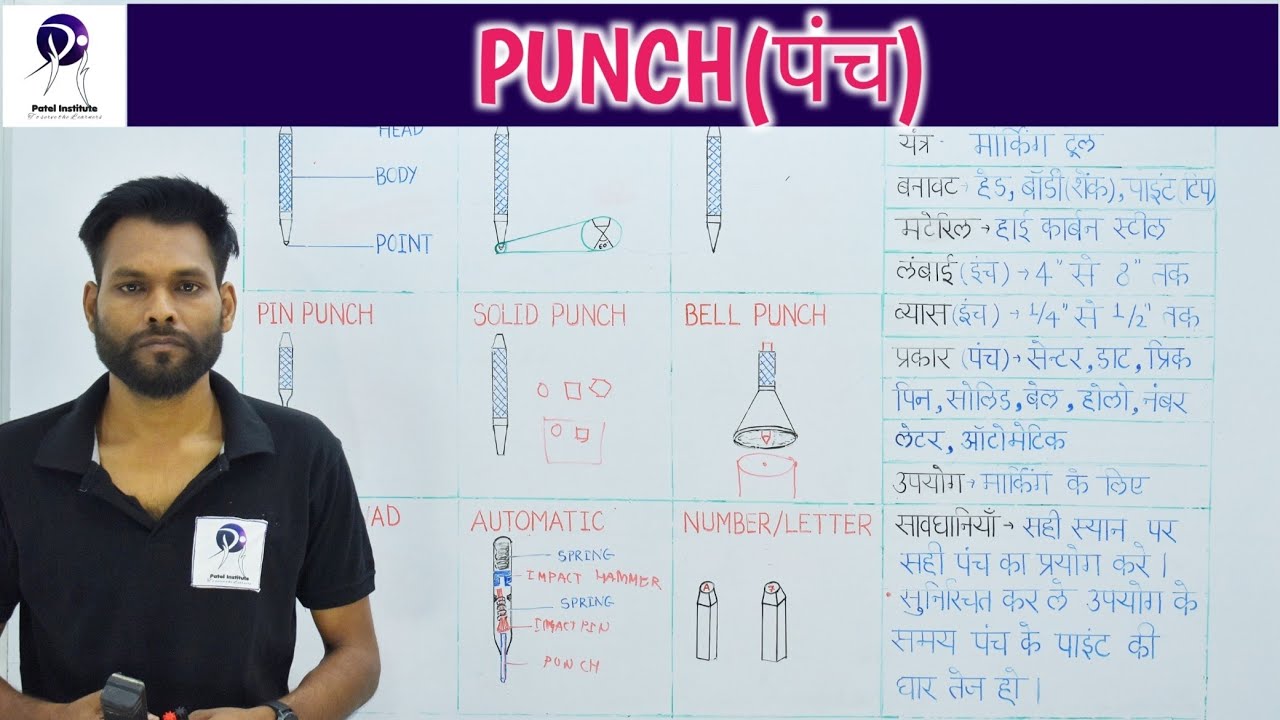 PUNCH(पंच)
Patel Institute
To serve the Learners
HEAD
BODY
POINT
60
PIN PUNCH
SOLID PUNCH
BELL PUNCH
AD
AUTOMATIC
SPRING
IMPACT HAMMER
SPRING
IMPACT PIN
PUNCH
NUMBER/LETTER
A
यंत्र - मार्किंग टूल
बनावट → हेड, बॉडी (शेंक), पाइंट (टिप)
मटेरिल → हाई कार्बन स्टील
लंबाई (इंच) → 4" से 8" तक
व्यास (इंच) → 1/4" से 1/2" तक
प्रकार (पंच) → सेन्टर, डाट, प्रिक
पिन, सोलिड, बेल, होलो, नंबर
लेटर, ऑटोमेटिक
उपयोग → मार्किंग के लिए
सावधानियाँ → सही स्थान पर
सही पंच का प्रयोग करे।
सुनिश्चित कर ले उपयोग के
समय पंच के पाइंट की
धार तेज हो।
Patel Institute